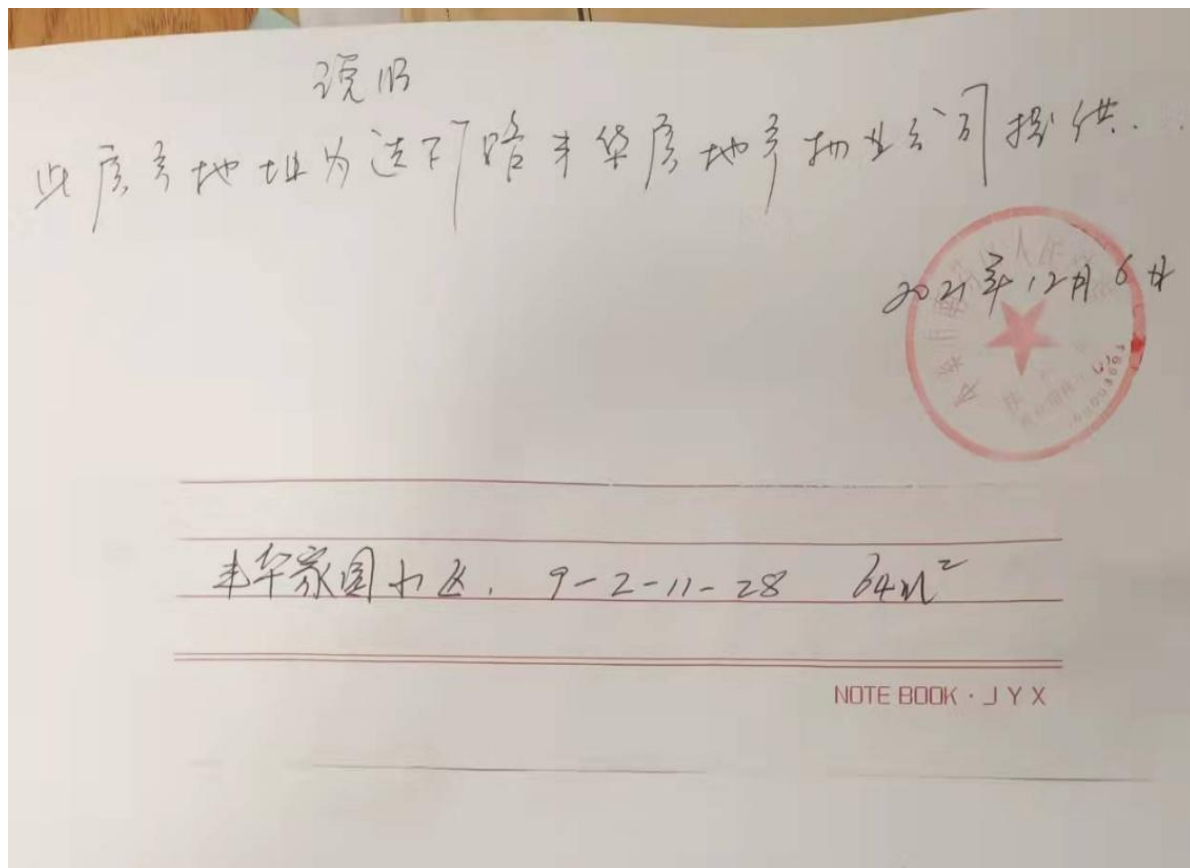 说明
此房产地址为迭下路丰华房地产物业公司提供.
2021年12月6日
丰华家园小区. 9-2-11-28 64m²
NOTE BOOK · J Y X